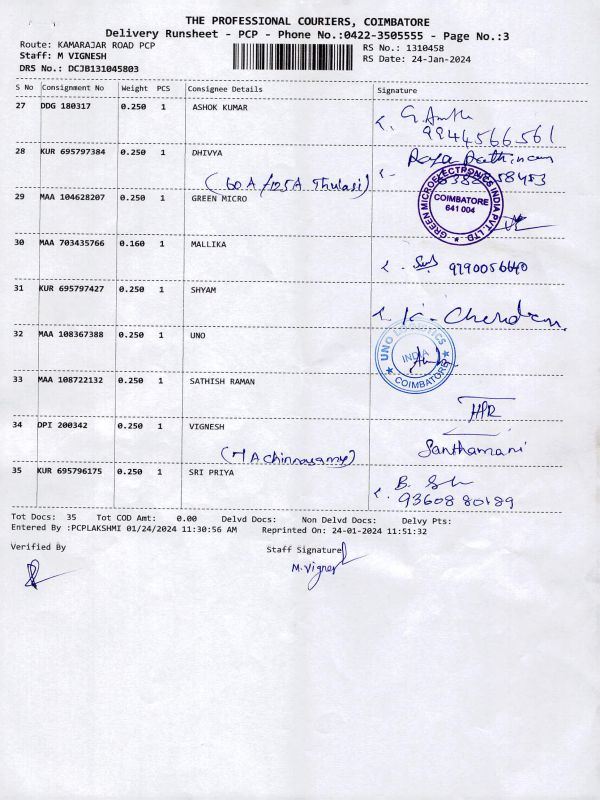 THE PROFESSIONAL COURIERS, COIMBATORE
Delivery Runsheet - PCP - Phone No.:0422-3505555 - Page No.:3
Route: KAMARAJAR ROAD PCP RS No.: 1310458
Staff: M VIGNESH RS Date: 24-Jan-2024
DRS No.: DCJB131045803
S No Consignment No Weight PCS Consignee Details Signature
27 DDG 180317 0.250 1 ASHOK KUMAR
9944566561
28 KUR 695797384 0.250 1 DHIVYA
(60A/105A Thulasi)
29 MAA 104628207 0.250 1 GREEN MICRO
GREEN MICROELECTRONICS INDIA PVT. LTD
COIMBATORE
641 004
30 MAA 703435766 0.160 1 MALLIKA
9790056640
31 KUR 695797427 0.250 1 SHYAM
K. Chendran
32 MAA 108367388 0.250 1 UNO
UNO
INDIA
COIMBATORE
33 MAA 108722132 0.250 1 SATHISH RAMAN
34 DPI 200342 0.250 1 VIGNESH
Santhamani
35 KUR 695796175 0.250 1 SRI PRIYA
93608 80189
Tot Docs: 35 Tot COD Amt: 0.00 Delvd Docs: Non Delvd Docs: Delvy Pts:
Entered By :PCPLAKSHMI 01/24/2024 11:30:56 AM Reprinted On: 24-01-2024 11:51:32
Verified By Staff Signature
M.Vignesh